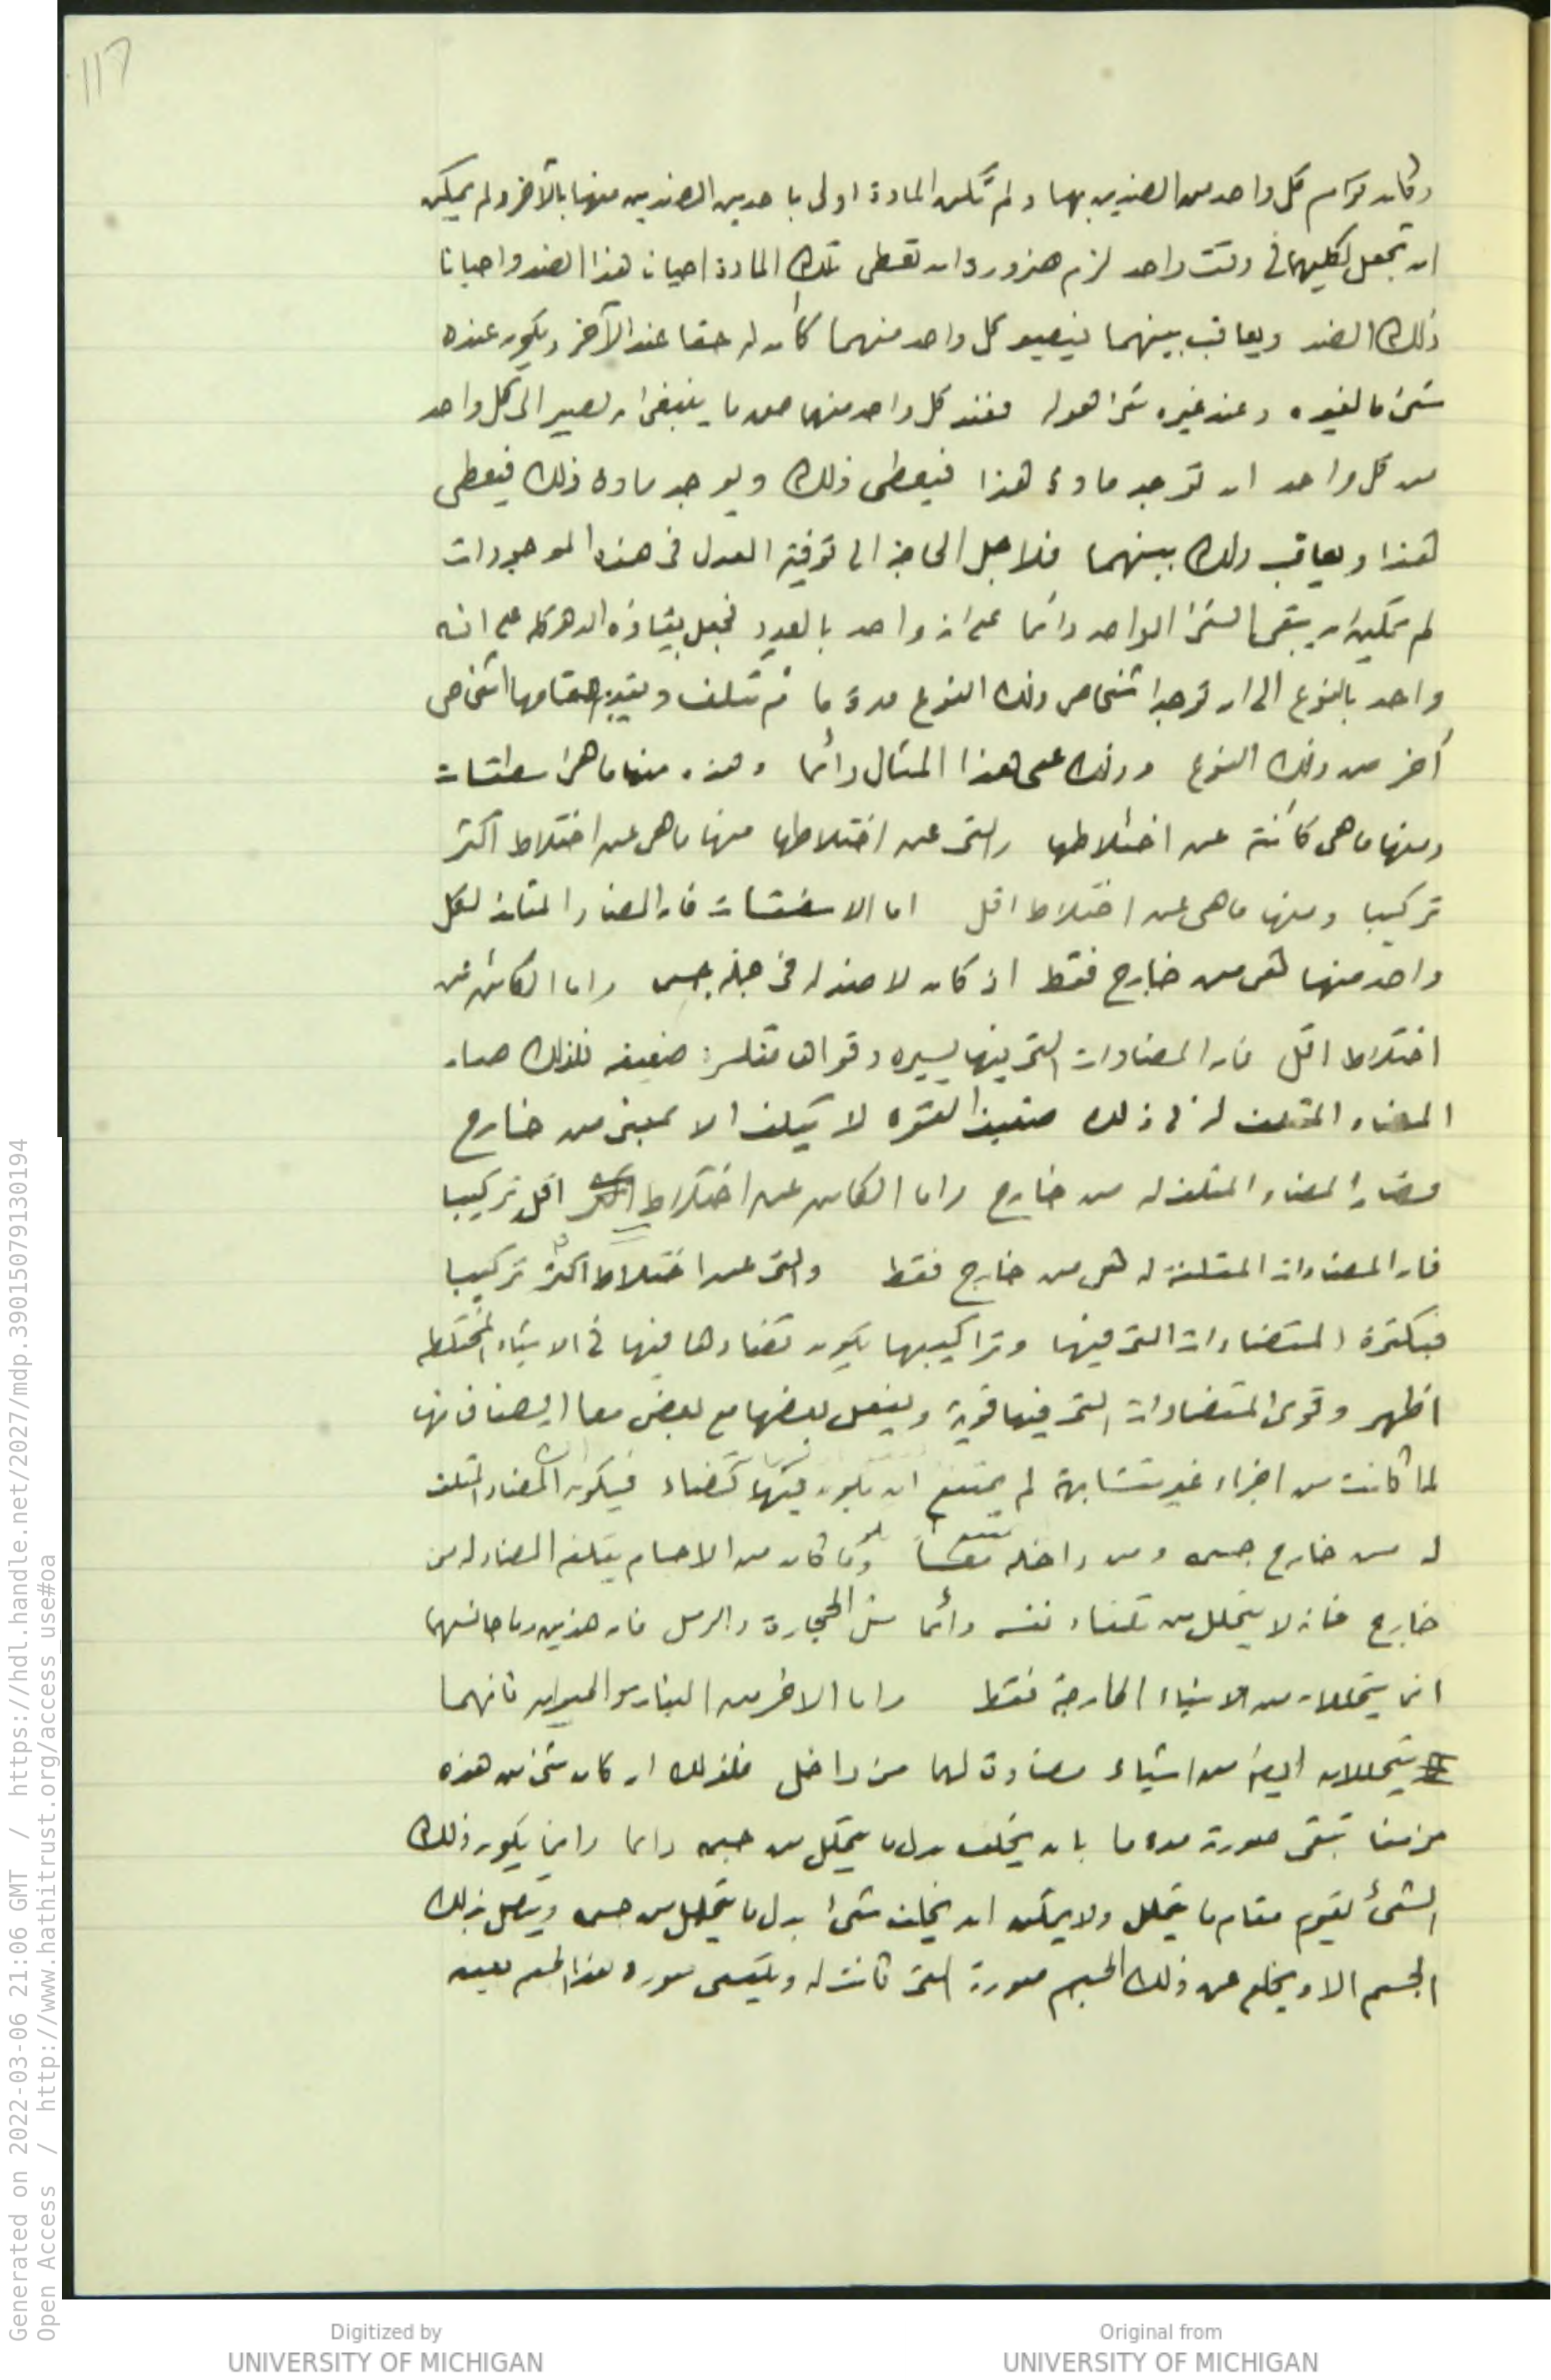 117
وكان قوام كل واحد من الضدين بها ولم تكن المادة اولى باحد من الضدين منها بالآخر ولم يمكن
ان تجعل لكليهما فى وقت واحد لزم ضرورة ان تعطى تلك المادة احيانا هذا الضد واحيانا
ذلك الضد ويعاقب بينهما فيصير كل واحد منهما كأن له حقا عند الآخر ويكون عنده
شئ ما لغيره وعند غيره شئ هو له فعند كل واحد منهما حق ما ينبغى ان يصير الى كل واحد
من كل واحد ان توجد مادة هذا فيعطى ذلك ويوجد مادة ذلك فيعطى
هذا ويعاقب ذلك بينهما فلاجل الحاجة الى توفية العدل فى هذه الموجودات
لم يمكن ان يبقى الشئ الواحد دائما على انه واحد بالعدد فجعل بقاؤه الدهر كله على انه
واحد بالنوع الى ان توجد اشخاص ذلك النوع مدة ما ثم تتلف ويقوم مقامها اشخاص
أخر من ذلك النوع وذلك على هذا المثال دائما وهذه منها ما هى اسطقسات
ومنها ما هى كائنة عن اختلاطها والتى عن اختلاطها منها ما هى عن اختلاط اكثر
تركيبا ومنها ما هى عن اختلاط اقل اما الاسطقسات فان المضاد المتلف لكل
واحد منها هى من خارج فقط اذ كان لا ضد له فى جملة جسمه واما الكائن عن
اختلاط اقل فان المضادات التى فيها يسيرة وقواها منكسرة ضعيفة فلذلك صار
المضاد المتلف له فى ذاته ضعيف القوة لا يتلف الا بمعين من خارج
فصار المضاد المتلف له من خارج واما الكائن عن اختلاط اقل تركيبا
فان المضادات المتلفة له هى من خارج فقط والتى عن اختلاط اكثر تركيبا
فبكثرة المتضادات التى فيها وتراكيبها يكون تضادها فيها فى الاشياء المختلطة
اظهر وقوى المتضادات التى فيها قوية ويفعل بعضها مع بعض معا ايضا فانها
لما كانت من اجزاء غير متشابهة لم يمتنع ان يكون فيها تضاد فيكون المضاد المتلف
له من خارج جسمه ومن داخله وما كان من الاجسام يتلفه المضاد له من
خارج فانه لا يتحلل من تلقاء نفسه دائما مثل الحجارة والرمل فان هذين وما جانسهما
انما يتحللان من الاشياء الخارجة فقط واما الاخر من النبات والحيوان فانهما
يتحللان ايضا من اشياء مضادة لهما من داخل فلذلك ان كان شئ من هذه
مزمعا تبقى صورته مدة ما بان يخلف بدل ما يتحلل من جسمه دائما وانما يكون ذلك
الشئ يقوم مقام ما يتحلل ولا يمكن ان يخلف شئ بدل ما يتحلل من جسمه ويتصل بذلك
الجسم الا ويخلع عن ذلك الجسم صورته التى كانت له ويكتسى صورة هذا الجسم بعينه
Generated on 2022-03-06 21:06 GMT / https://hdl.handle.net/2027/mdp.39015079130194
Open Access / http://www.hathitrust.org/access_use#oa
Digitized by
UNIVERSITY OF MICHIGAN
Original from
UNIVERSITY OF MICHIGAN